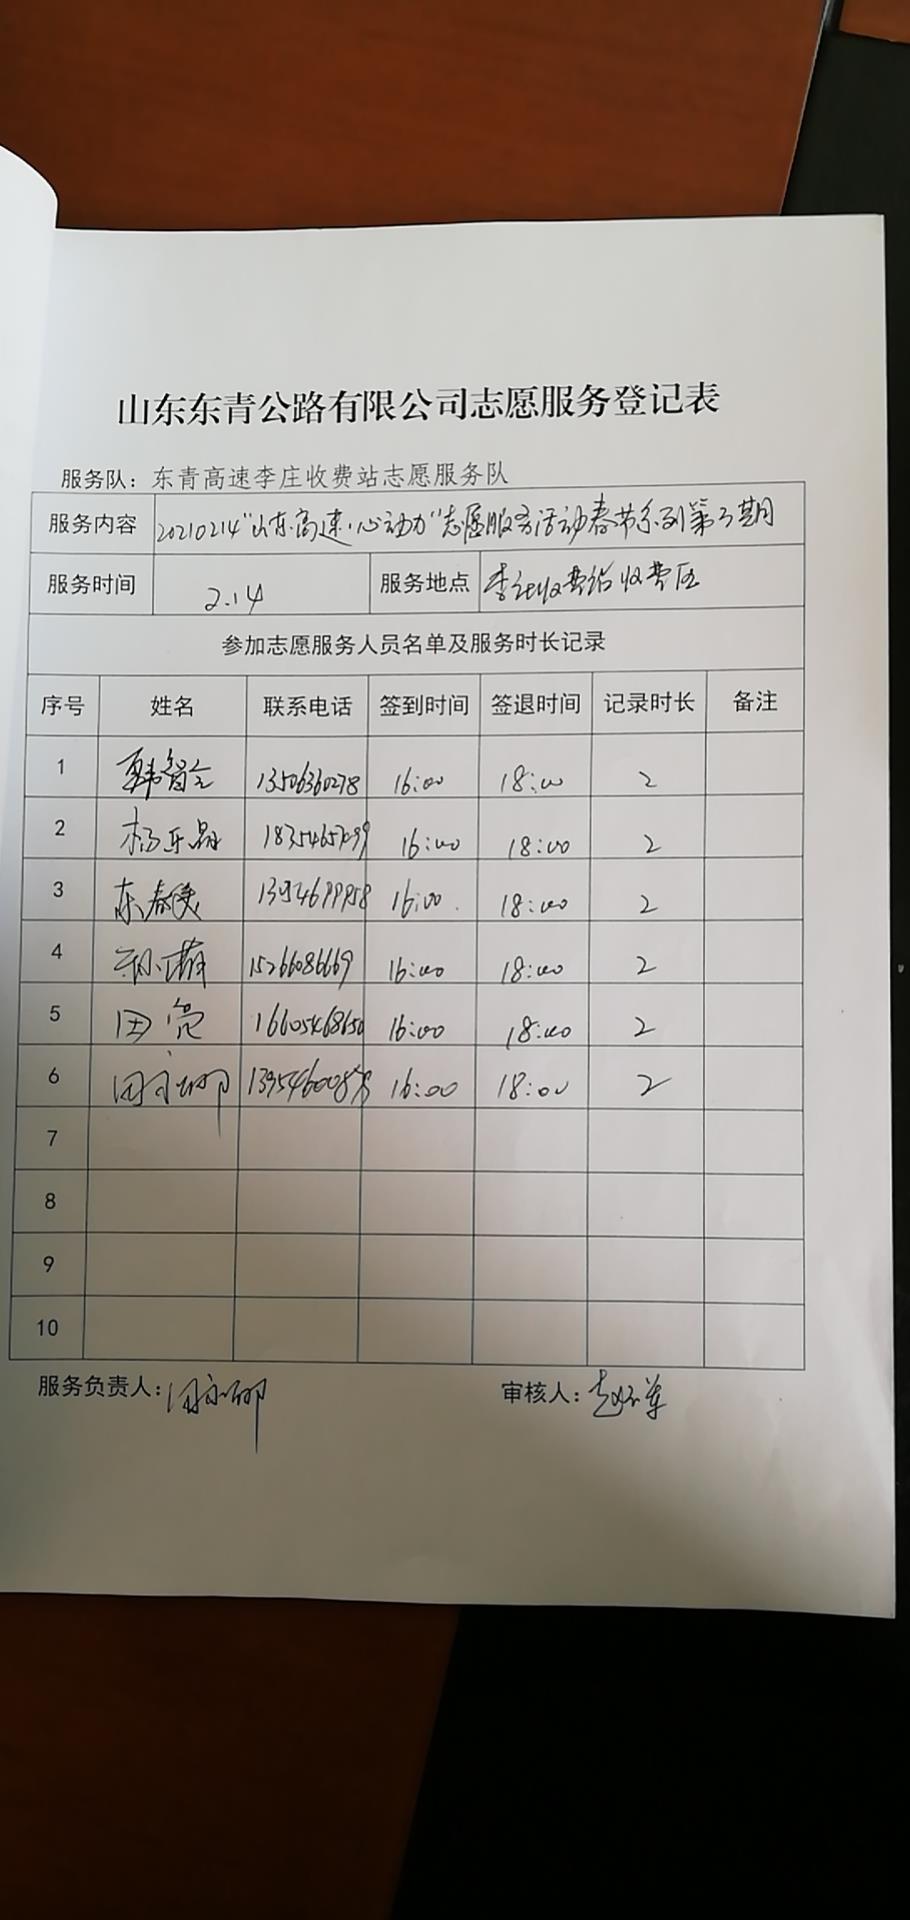 山东东青公路有限公司志愿服务登记表
服务队：东青高速李庄收费站志愿服务队
服务内容 20210214"山东高速·心动力"志愿服务活动春节系列第3期
服务时间 2.14 服务地点 收费站收费区
参加志愿服务人员名单及服务时长记录
序号 姓名 联系电话 签到时间 签退时间 记录时长 备注
1 韩智 13506360278 16:00 18:00 2
2 杨乐 16:00 18:00 2
3 春 16:00 18:00 2
4 15266086669 16:00 18:00 2
5 田亮 16605468650 16:00 18:00 2
6 田 16:00 18:00 2
7
8
9
10
服务负责人： 审核人：